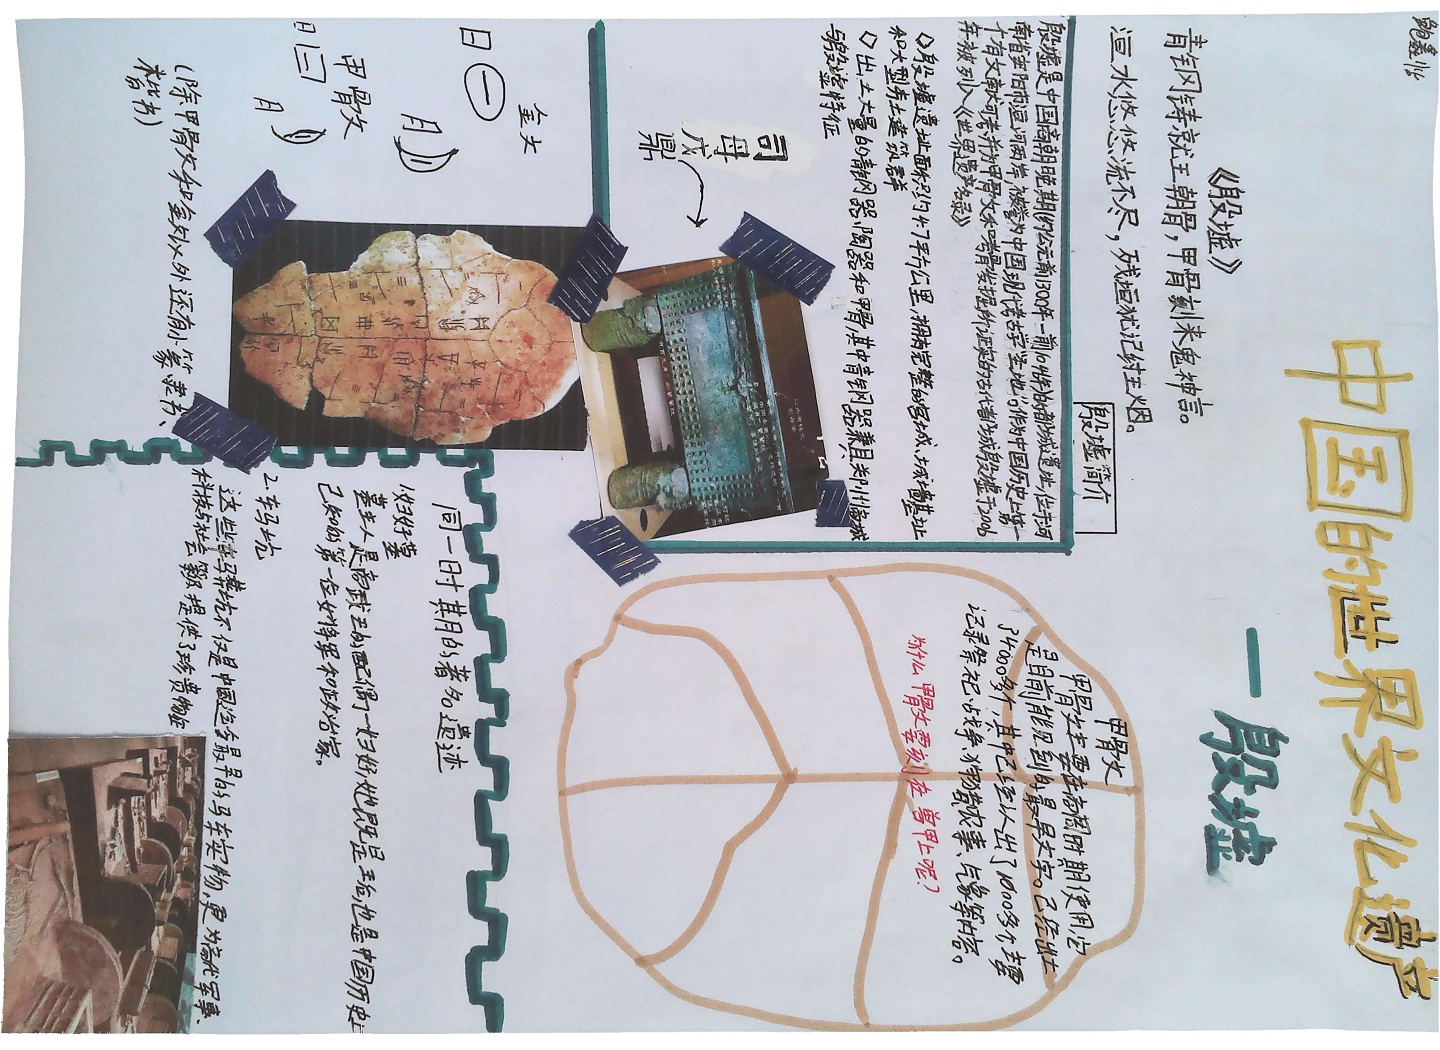 中国的世界文化遗产
—殷墟
《殷墟》
青铜铸就王朝骨，甲骨刻来鬼神言。
洹水悠悠流不尽，残垣犹记纣王烟。
殷墟简介
殷墟是中国商朝晚期(约公元前1300年-前1046年)的都城遗址，位于河
南省安阳市洹河两岸，被誉为中国现代考古学圣地，作为中国历史上第一
个有文献可考并为甲骨文和考古发掘所证实的古代都城，殷墟于2006
年被列入《世界遗产名录》
◇殷墟遗址面积约47平方公里，拥有完整的宫城、城墓基址
和大型夯土建筑群
◇出土大量的青铜器陶器和甲骨，其中青铜器兼且郑州商城
与殷墟特征
司母戊
鼎
金文
日
月
甲骨文
日
月
(除甲骨文和金文外还有小篆、隶书、
楷书)
甲骨文
甲骨文主要在商周时期使用，它
是目前能识到的最早文字。已经出土
了4000多个，其中已经认出了1000多个，主要
记录祭祀、战争、狩猎、农事、气象等内容。
为什么甲骨文要刻在兽甲上呢？
同一时期的著名遗迹
1.妇好墓
墓主人是商武王的配偶——妇好，她既是王后，也是中国历史上
已知的第一位女将军和政治家。
2.车马坑
这些车马葬坑不仅是中国迄今最早的马车实物，更为商代军事、
科技与社会等级提供了珍贵物证